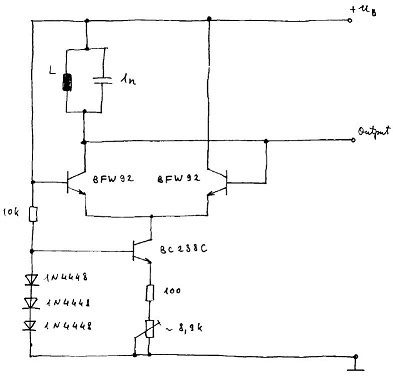 +UB
L
1n
Output
BFW92
BFW92
10k
BC238C
1N4448
1N4448
1N4448
100
~ 8,9k